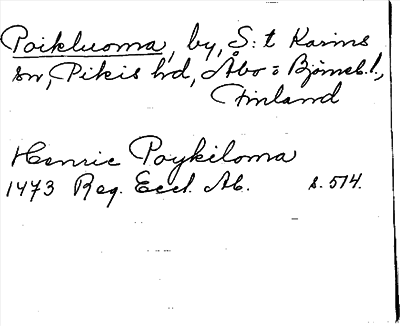 Poikluoma, by, S:t Karins
sn, Pikis hd, Åbo o Björneb. l.,
Finland
Henric Poykiloma
1473 Reg. Eccl. Ab. s. 514.